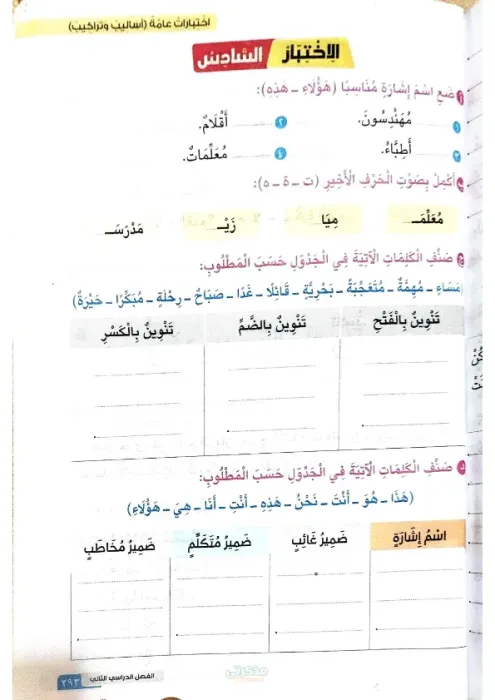 اختبارات عامة (أساليب وتراكيب)
الِاخْتِبَارُ السَّادِسُ
١ ضَعِ اسْمَ إِشَارَةٍ مُنَاسِبًا (هَؤُلَاءِ - هَذِهِ):
١ ........ مُهَنْدِسُونَ. ٢ ........ أَقْلَامٌ.
٣ ........ أَطِبَّاءُ. ٤ ........ مُعَلِّمَاتٌ.
٢ أَكْمِلْ بِصَوْتِ الْحَرْفِ الْأَخِيرِ (ت - ة - ه):
مُعَلِّمَـ.... مِيَا.... زَيْـ.... مَدْرَسَـ....
٣ صَنِّفِ الْكَلِمَاتِ الْآتِيَةَ فِي الْجَدْوَلِ حَسَبَ الْمَطْلُوبِ:
(مَسَاءً - مُهِمَّةٌ - مُتَعَجِّبَةً - بَحْرِيَّةٍ - قَائِلًا - غَدًا - صَبَاحٌ - رِحْلَةٍ - مُبَكِّرًا - حَيْرَةٌ)
تَنْوِينٌ بِالْفَتْحِ تَنْوِينٌ بِالضَّمِّ تَنْوِينٌ بِالْكَسْرِ
٤ صَنِّفِ الْكَلِمَاتِ الْآتِيَةَ فِي الْجَدْوَلِ حَسَبَ الْمَطْلُوبِ:
(هَذَا - هُوَ - أَنْتَ - نَحْنُ - هَذِهِ - أَنْتِ - أَنَا - هِيَ - هَؤُلَاءِ)
اسْمُ إِشَارَةٍ ضَمِيرُ غَائِبٍ ضَمِيرُ مُتَكَلِّمٍ ضَمِيرُ مُخَاطَبٍ
مذكرتي
الفصل الدراسي الثاني ٢٩٣